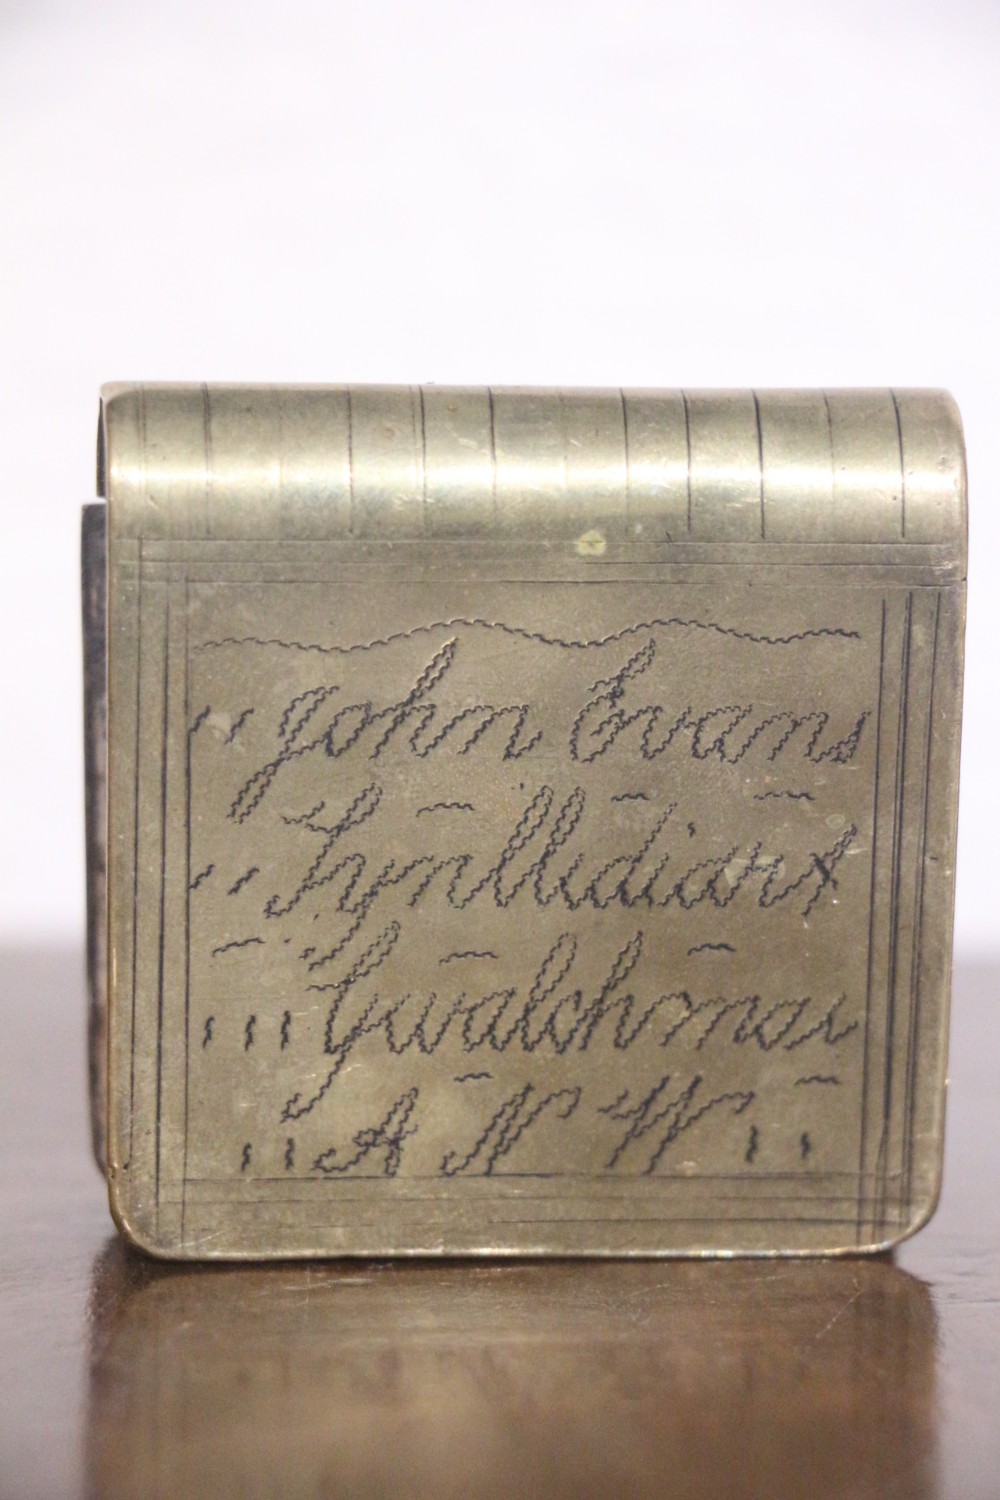 John Evans
Tynllidiart
Gwalchmai
A N W